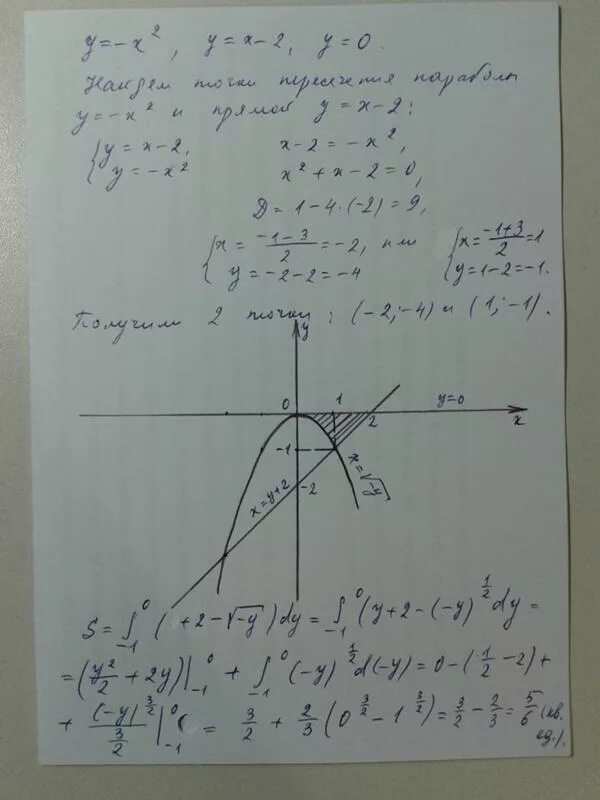 y=-x², y=x-2, y=0.
Найдем точки пересечения параболы
y=-x² и прямой y=x-2:
{y=x-2, x-2=-x²,
{y=-x² x²+x-2=0,
D=1-4·(-2)=9,
{x=(-1-3)/2=-2, или {x=(-1+3)/2=1
{y=-2-2=-4 {y=1-2=-1.
Получим 2 точки: (-2;-4) и (1;-1).
y
0 1 y=0
2 x
-1
x=√-y
-2
x=y+2
S=∫₋₁⁰( +2-√-y)dy=∫₋₁⁰(y+2-(-y)^½dy=
=(y²/2+2y)|₋₁⁰+∫₋₁⁰(-y)^½d(-y)=0-(½-2)+
+(-y)^(3/2)/(3/2)|₋₁⁰=3/2+2/3(0^(3/2)-1^(3/2))=3/2-2/3=5/6(кв.
ед.).